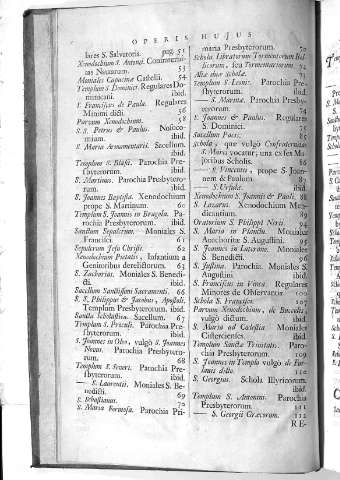 OPERIS HUJUS
lares S. Salvatoris. pag. 51
Xenodochium S. Antonii. Commensurietas Nonarum. 53
Moniales Capucinæ Castelli. 54
Templum S. Dominici. Regulares Dominicani. ibid.
S. Francisci de Paula. Regulares
Minimi dicti. 56
Parvum Xenodochium. 58
S. s. Petrus & Paulus. Nosocomium. ibid.
S. Maria Armamentarii. Sacellum. ibid.
Templum S. Blasii. Parochia Presbyterorum. ibid.
S. Martinus. Parochia Presbyterorum. ibid.
S. Joannes Baptista. Xenodochium
prope S. Martinum. 60
Templum S. Joannis in Bragola. Parochia Presbyterorum. ibid.
Sanctum Sepulcrum. Moniales S.
Francisci 61
Sepulcrum Jesu Christi. 62
Xenodochium Pietatis, Infantium a
Genitoribus derelictorum. 63
S. Zacharias. Moniales S. Benedicti. ibid.
Sacellum Sanctissimi Sacramenti. 66
S. S. Philippus & Jacobus, Apostoli.
Templum Presbyterorum. ibid.
Sancta Scholastica. Sacellum. 67
Templum S. Proculi. Parochia Presbyterorum. ibid.
S. Joannes in Oleo, vulgò S. Joannes
Novus. Parochia Presbyterorum. 68
Templum S. Severi. Parochia Presbyterorum. ibid.
— S. Laurentii. Moniales S. Benedicti. 69
S. Sebastianus. 70
S. Maria Formosa. Parochia Pri-
maria Presbyterorum. 70
Schola Libratorum Tormentorum Bellicorum, seu Tormentariorum 72
Aliæ duæ Scholæ. 73
Templum S. Leonis. Parochia Presbyterorum. ibid.
— S. Marinæ. Parochia Presbyterorum. 74
S. Joannes & Paulus. Regulares
S. Dominici. 75
Sacellum Pacis. 85
Schola, quæ vulgò Confraternitas
S. Marci vocatur, una ex sex Majoribus Scholis. 86
— S. Vincentii, prope S. Joannem & Paulum. 87
— S. Ursulæ. ibid.
Xenodochium S. Joannis & Pauli. 88
S. Lazarus. Xenodochium Mendicantium. 89
Oratorium S. Philippi Nerii. 94
S. Maria in Planctu. Moniales
Anachoritæ S. Augustini. 95
S. Joannes in Laterano. Moniales
S. Benedicti. 96
S. Justina. Parochia. Moniales S.
Augustini ibid.
S. Franciscus in Vinea. Regulares
Minores de Observantia. 98
Schola S. Francisci 107
Parvum Xenodochium, de Boccolis,
vulgò dictum. ibid.
S. Maria ad Cælestia. Moniales
Cistercienses. ibid.
Templum Sanctæ Trinitatis. Parochia Presbyterorum. 109
S. Joannes in Templo vulgò de Furlanis dicto. 110
S. Georgius. Schola Illyricorum.
ibid.
Templum S. Antonini. Parochia
Presbyterorum. 111
— S. Georgii Græcorum. 112
RE-